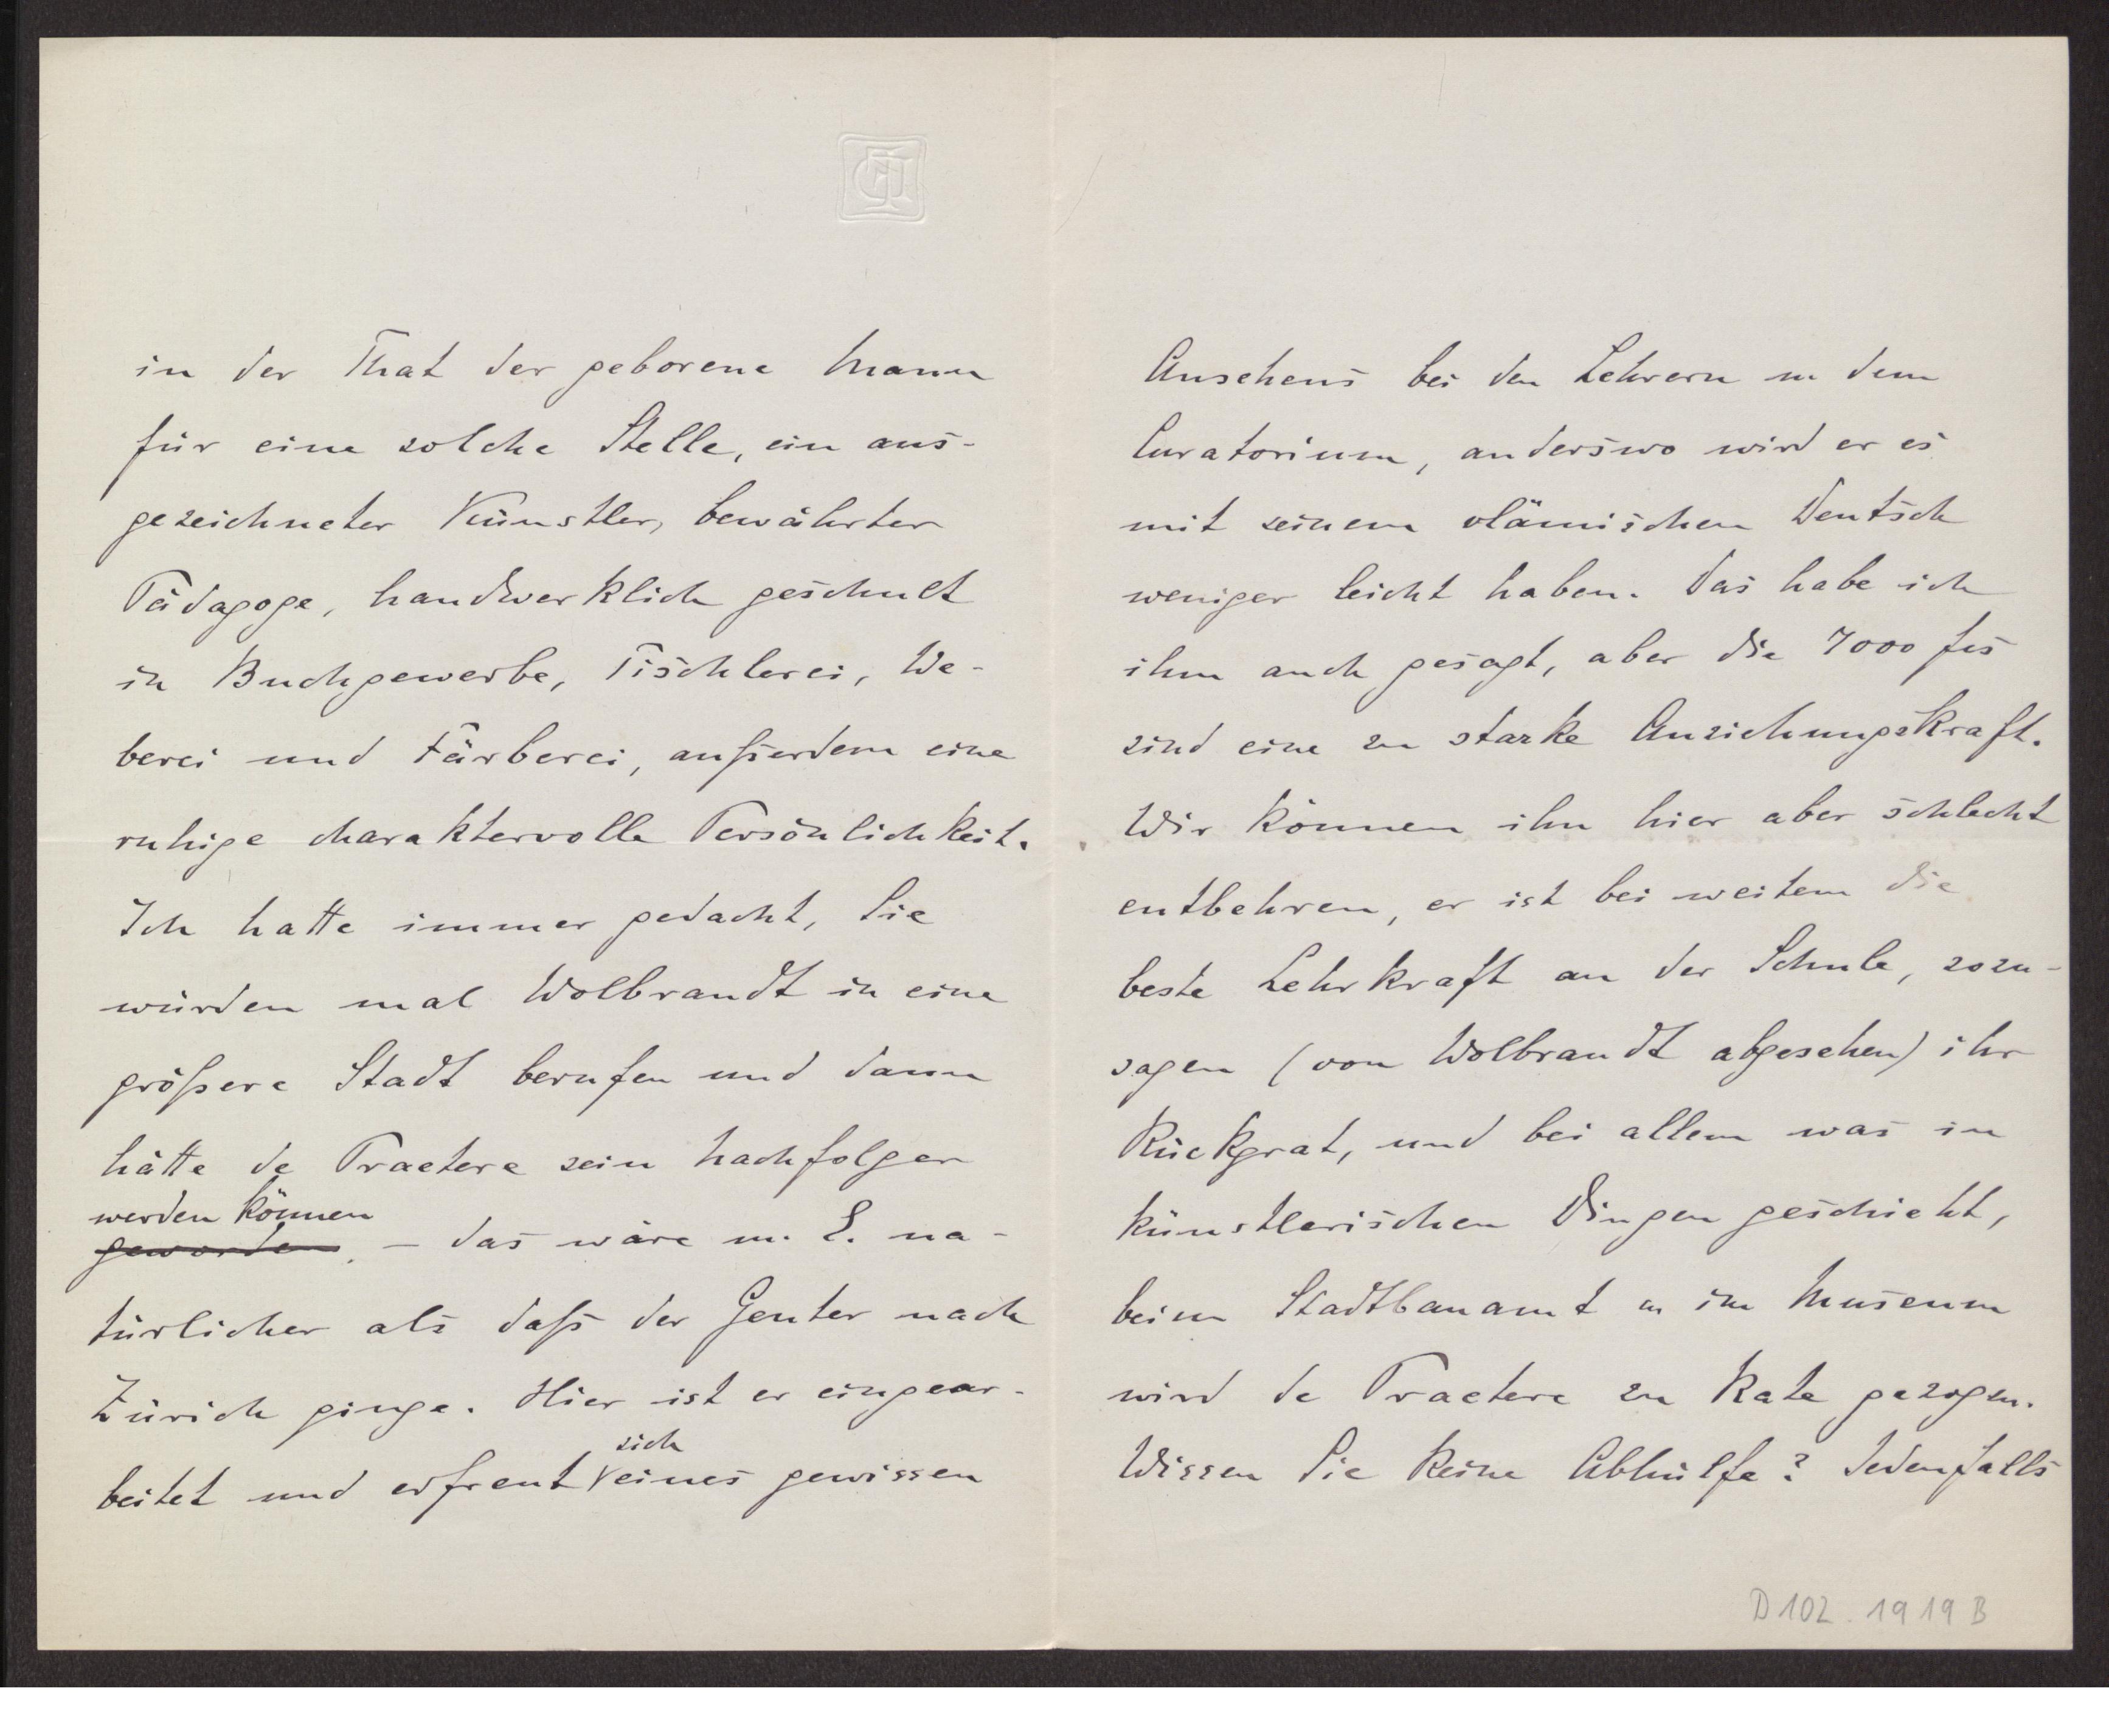 in der That der geborene Mann
für eine solche Stelle, ein aus-
gezeichneter Künstler, bewährter
Pädagoge, handwerklich geschult
in Buchgewerbe, Tischlerei, We-
berei und Färberei, außerdem eine
ruhige charaktervolle Persönlichkeit.
Ich hatte immer gedacht, Sie
würden mal Wolbrandt in eine
größere Stadt berufen und dann
hätte de Praetere sein Nachfolger
werden können
geworden. – das wäre m. E. na-
türlicher als daß der Genter nach
Zürich ginge. Hier ist er eingear-
sich
beitet und erfreut eines gewissen
Ansehens bei den Lehrern u dem
Curatorium, anderswo wird er es
mit seinem vlämischen Deutsch
weniger leicht haben. Das habe ich
ihm auch gesagt, aber die 7000 frs
sind eine zu starke Anziehungskraft.
Wir können ihn hier aber schlecht
entbehren, er ist bei weitem die
beste Lehrkraft an der Schule, sozu-
sagen (von Wolbrandt abgesehen) ihr
Rückgrat, und bei allem was in
künstlerischen Dingen geschieht,
beim Stadtbauamt u im Museum
wird de Praetere zu Rate gezogen.
Wissen Sie keine Abhülfe? Jedenfalls
D 102. 1919 B